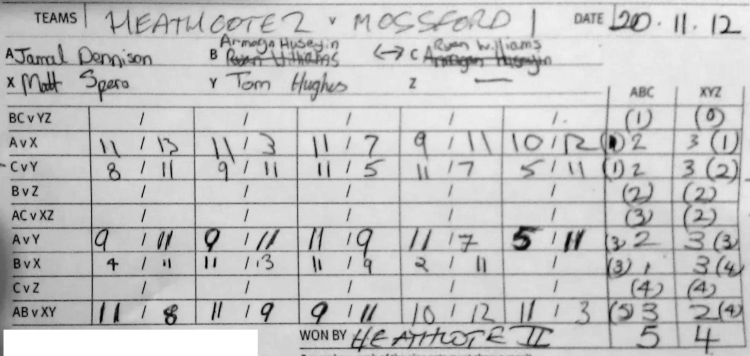 TEAMS HEATHCOTE 2 v MOSSFORD 1 DATE 20.11.12
A Jamal Dennison B Armagan Huseyin Ryan Williams ↔ C Ryan Williams Armagan Huseyin
X Matt Spero Y Tom Hughes Z —
ABC XYZ
BC v YZ / / / / / (1) (0)
A v X 11 / 13 11 / 3 11 / 7 9 / 11 10 / 12 (1) 2 3 (1)
C v Y 8 / 11 9 / 11 11 / 5 11 / 7 5 / 11 (1) 2 3 (2)
B v Z / / / / / (2) (2)
AC v XZ / / / / / (3) (2)
A v Y 9 / 11 9 / 11 11 / 9 11 / 7 5 / 11 (3) 2 3 (3)
B v X 4 / 11 11 / 13 11 / 9 2 / 11 / (3) 1 3 (4)
C v Z / / / / / (4) (4)
AB v XY 11 / 8 11 / 9 9 / 11 10 / 12 11 / 3 (5) 3 2 (4)
WON BY HEATHCOTE II 5 4